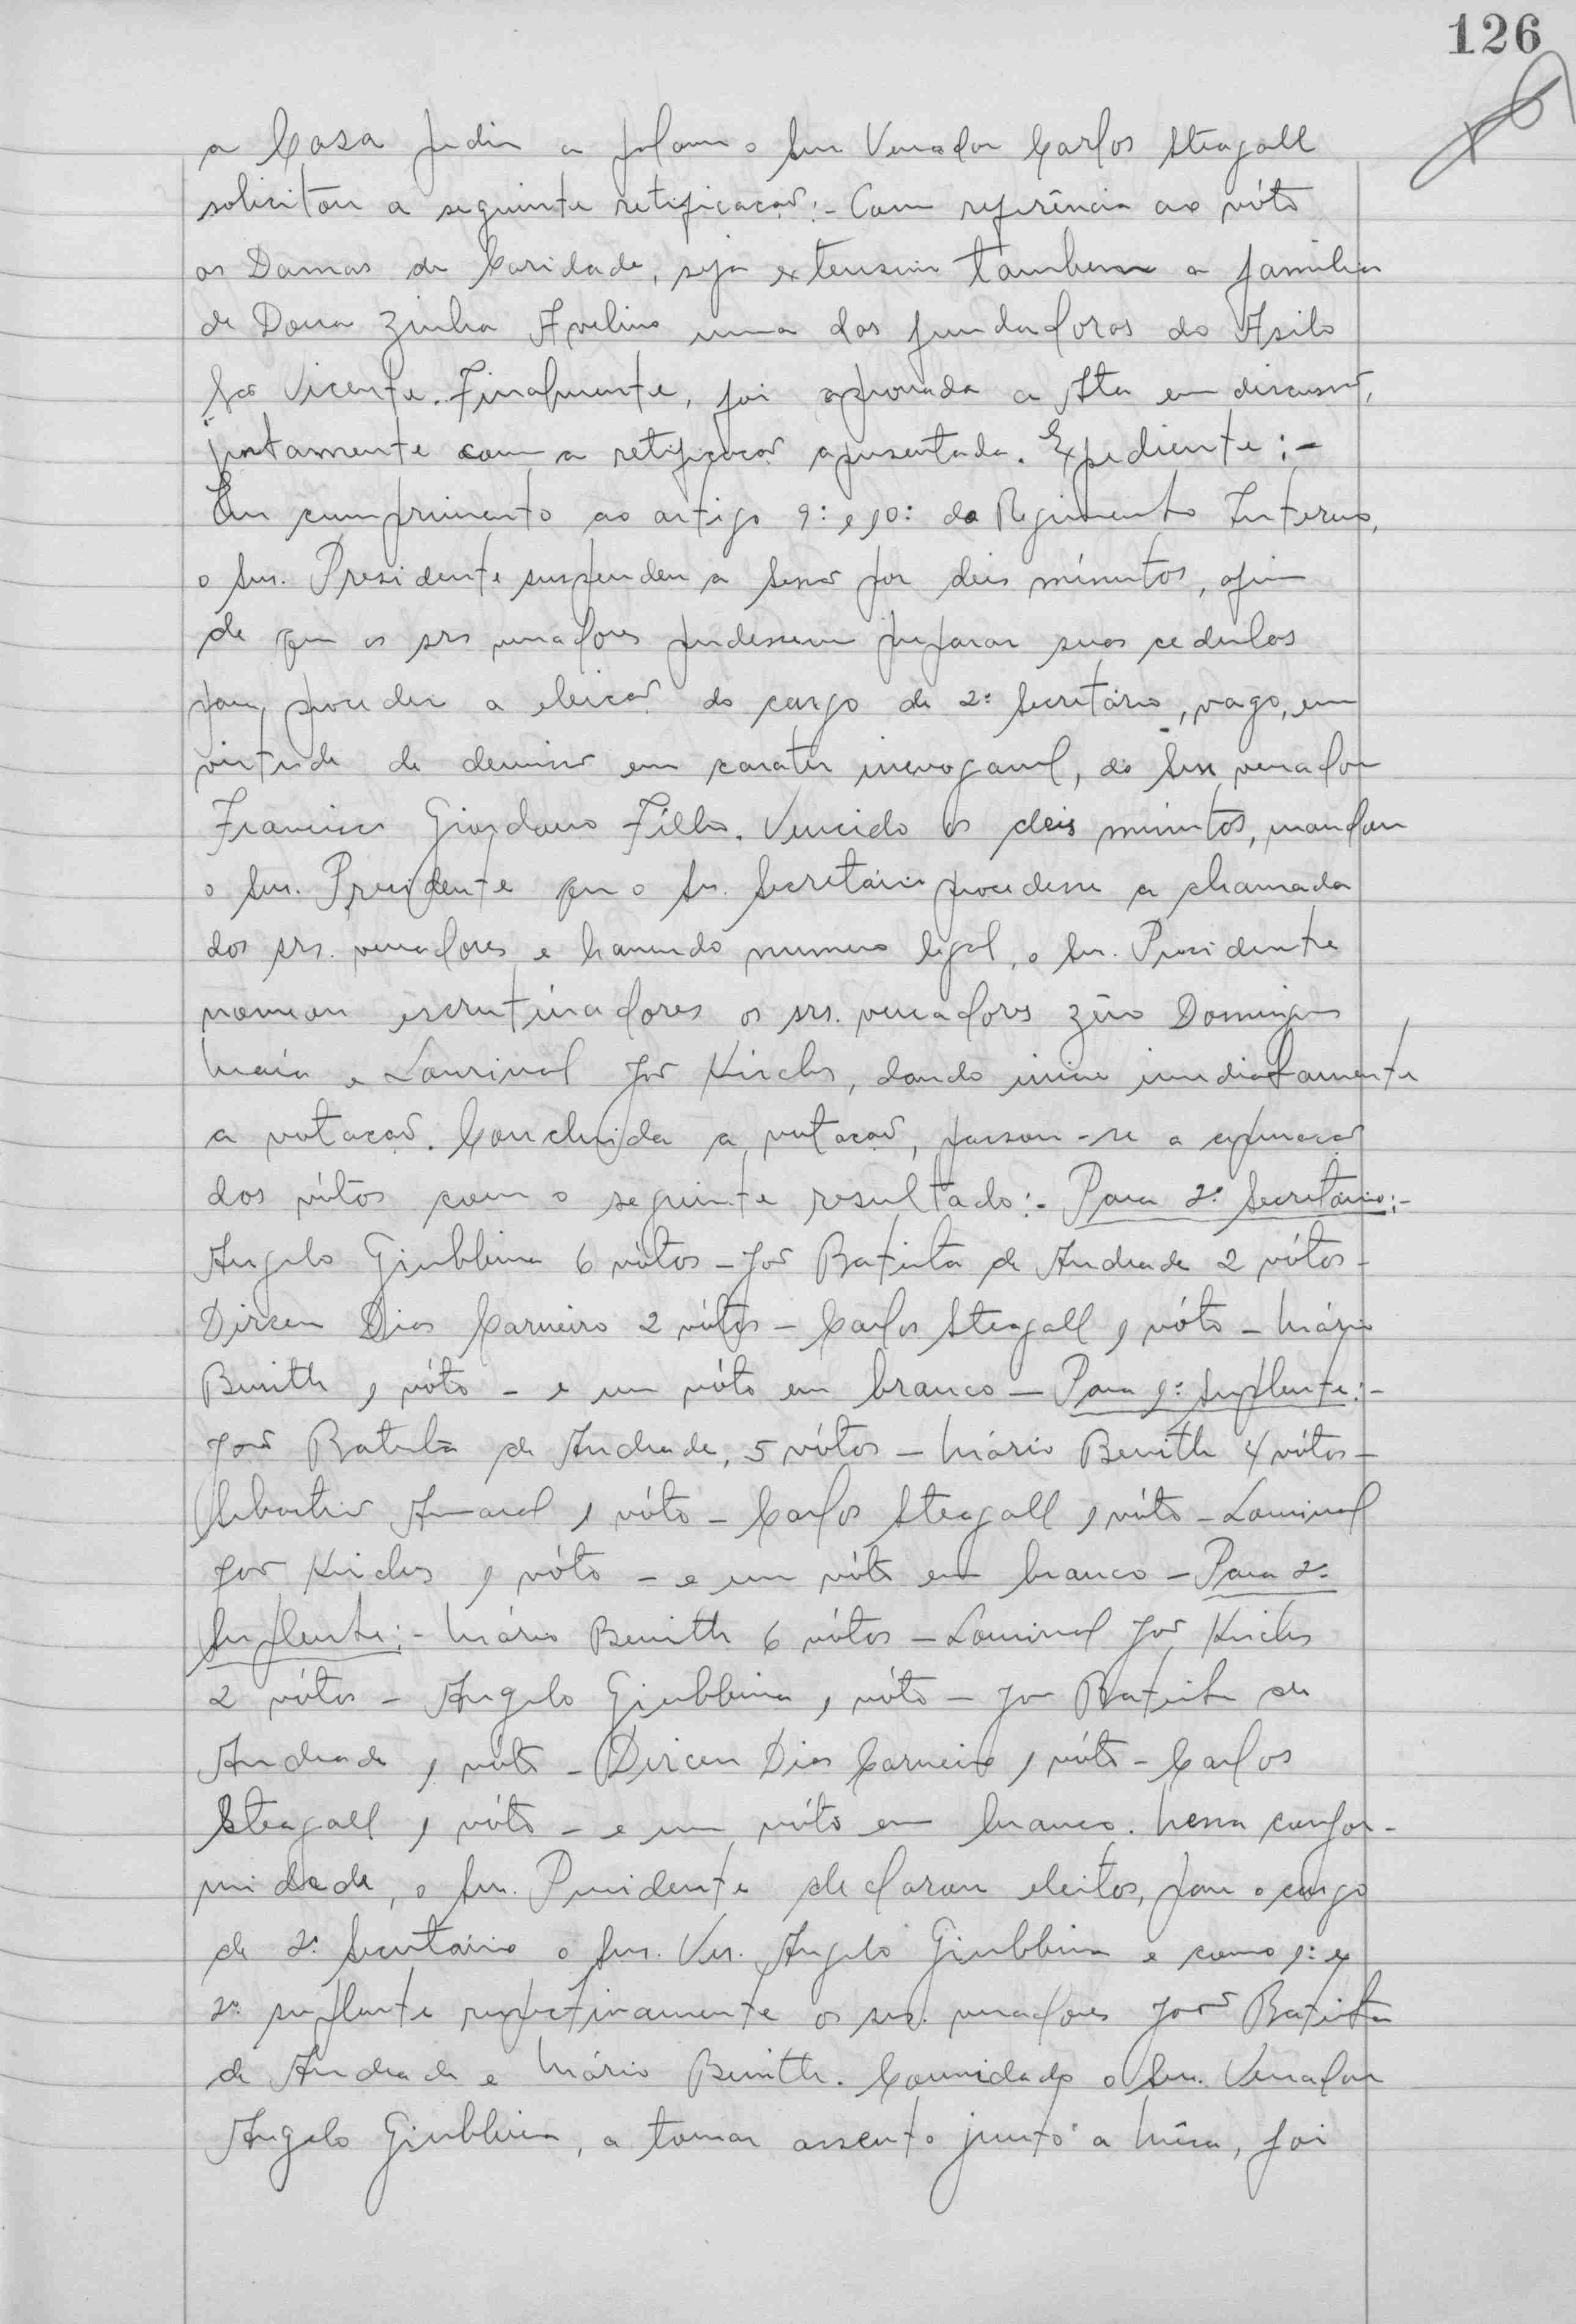 126
a Casa pediu a palavra o Snr Vereador Carlos Steagall
solicitou a seguinte retificação:- Com referência ao vóto
as Damas de Caridade, seja extensivo tambem a familia
de Dona Zinha Avelino uma das fundadoras do Asilo
São Vicente. Finalmente, foi aprovada a Ata em discussão,
juntamente com a retificação apresentada. Expediente:-
Em cumprimento ao artigo 9º e 10º do Regimento Interno,
o Snr. Presidente suspendeu a Sessão por deis mínutos, afim
de que os srs vereadores pudessem preparar suas cedulas
para proceder a eleição do cargo de 2º Secretário, vago, em
virtude de demissão em carater irrevogavel, do Snr vereador
Francisco Giordano Filho. Vencido os deis minutos, mandou
o Snr. Presidente que o Sr. Secretário procedesse a chamada
dos srs. vereadores e havendo numero legal, o Snr. Presidente
nomeou escrutinadores os srs. vereadores Zêno Domingues
Maia e Lourival José Kirches, dando inicio imediatamente
a votação. Concluida a votação, passou-se a apuração
dos vótos com o seguinte resultado:- Para 2º Secretário:-
Angelo Giubbina 6 vótos - José Batista de Andrade 2 vótos -
Dirceu Dias Carneiro 2 vótos - Carlos Steagall 1 vóto - Mário
Benith 1 vóto - e um vóto em branco - Para 1º Suplente:-
José Batista de Andrade, 5 vótos - Mário Benith 4 vótos -
Sebastião Amaral 1 vóto - Carlos Steagall 1 vóto - Lourival
José Kirches 1 vóto - e um vóto em branco - Para 2º
Suplente:- Mário Benith 6 vótos - Lourival José Kirches
2 vótos - Angelo Giubbina 1 vóto - José Batista de
Andrade 1 vóto - Dirceu Dias Carneiro 1 vóto - Carlos
Steagall 1 vóto - e um vóto em branco. Nessa confor-
midade, o Snr. Presidente declarou eleitos, para o cargo
de 2º Secretário o Snr. Ver. Angelo Giubbina e como 1º e
2º suplente respectivamente os srs. vereadores José Batista
de Andrade e Mário Benith. Convidado o Snr. Vereador
Angelo Giubbina, a tomar assento junto a Mêsa, foi